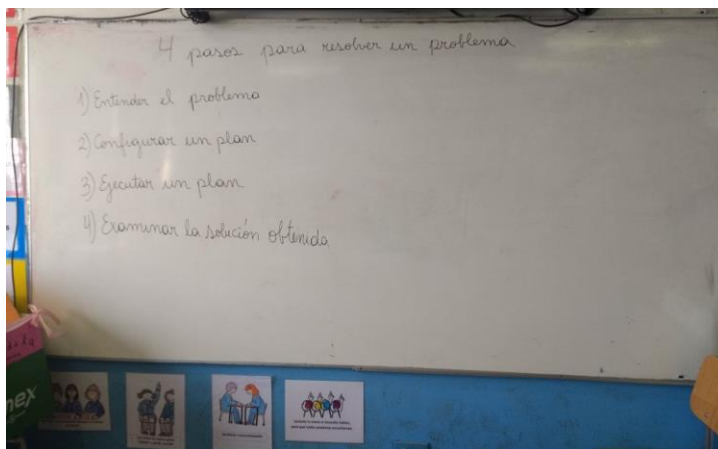 4 pasos para resolver un problema
1) Entender el problema
2) Configurar un plan
3) Ejecutar un plan
4) Examinar la solución obtenida